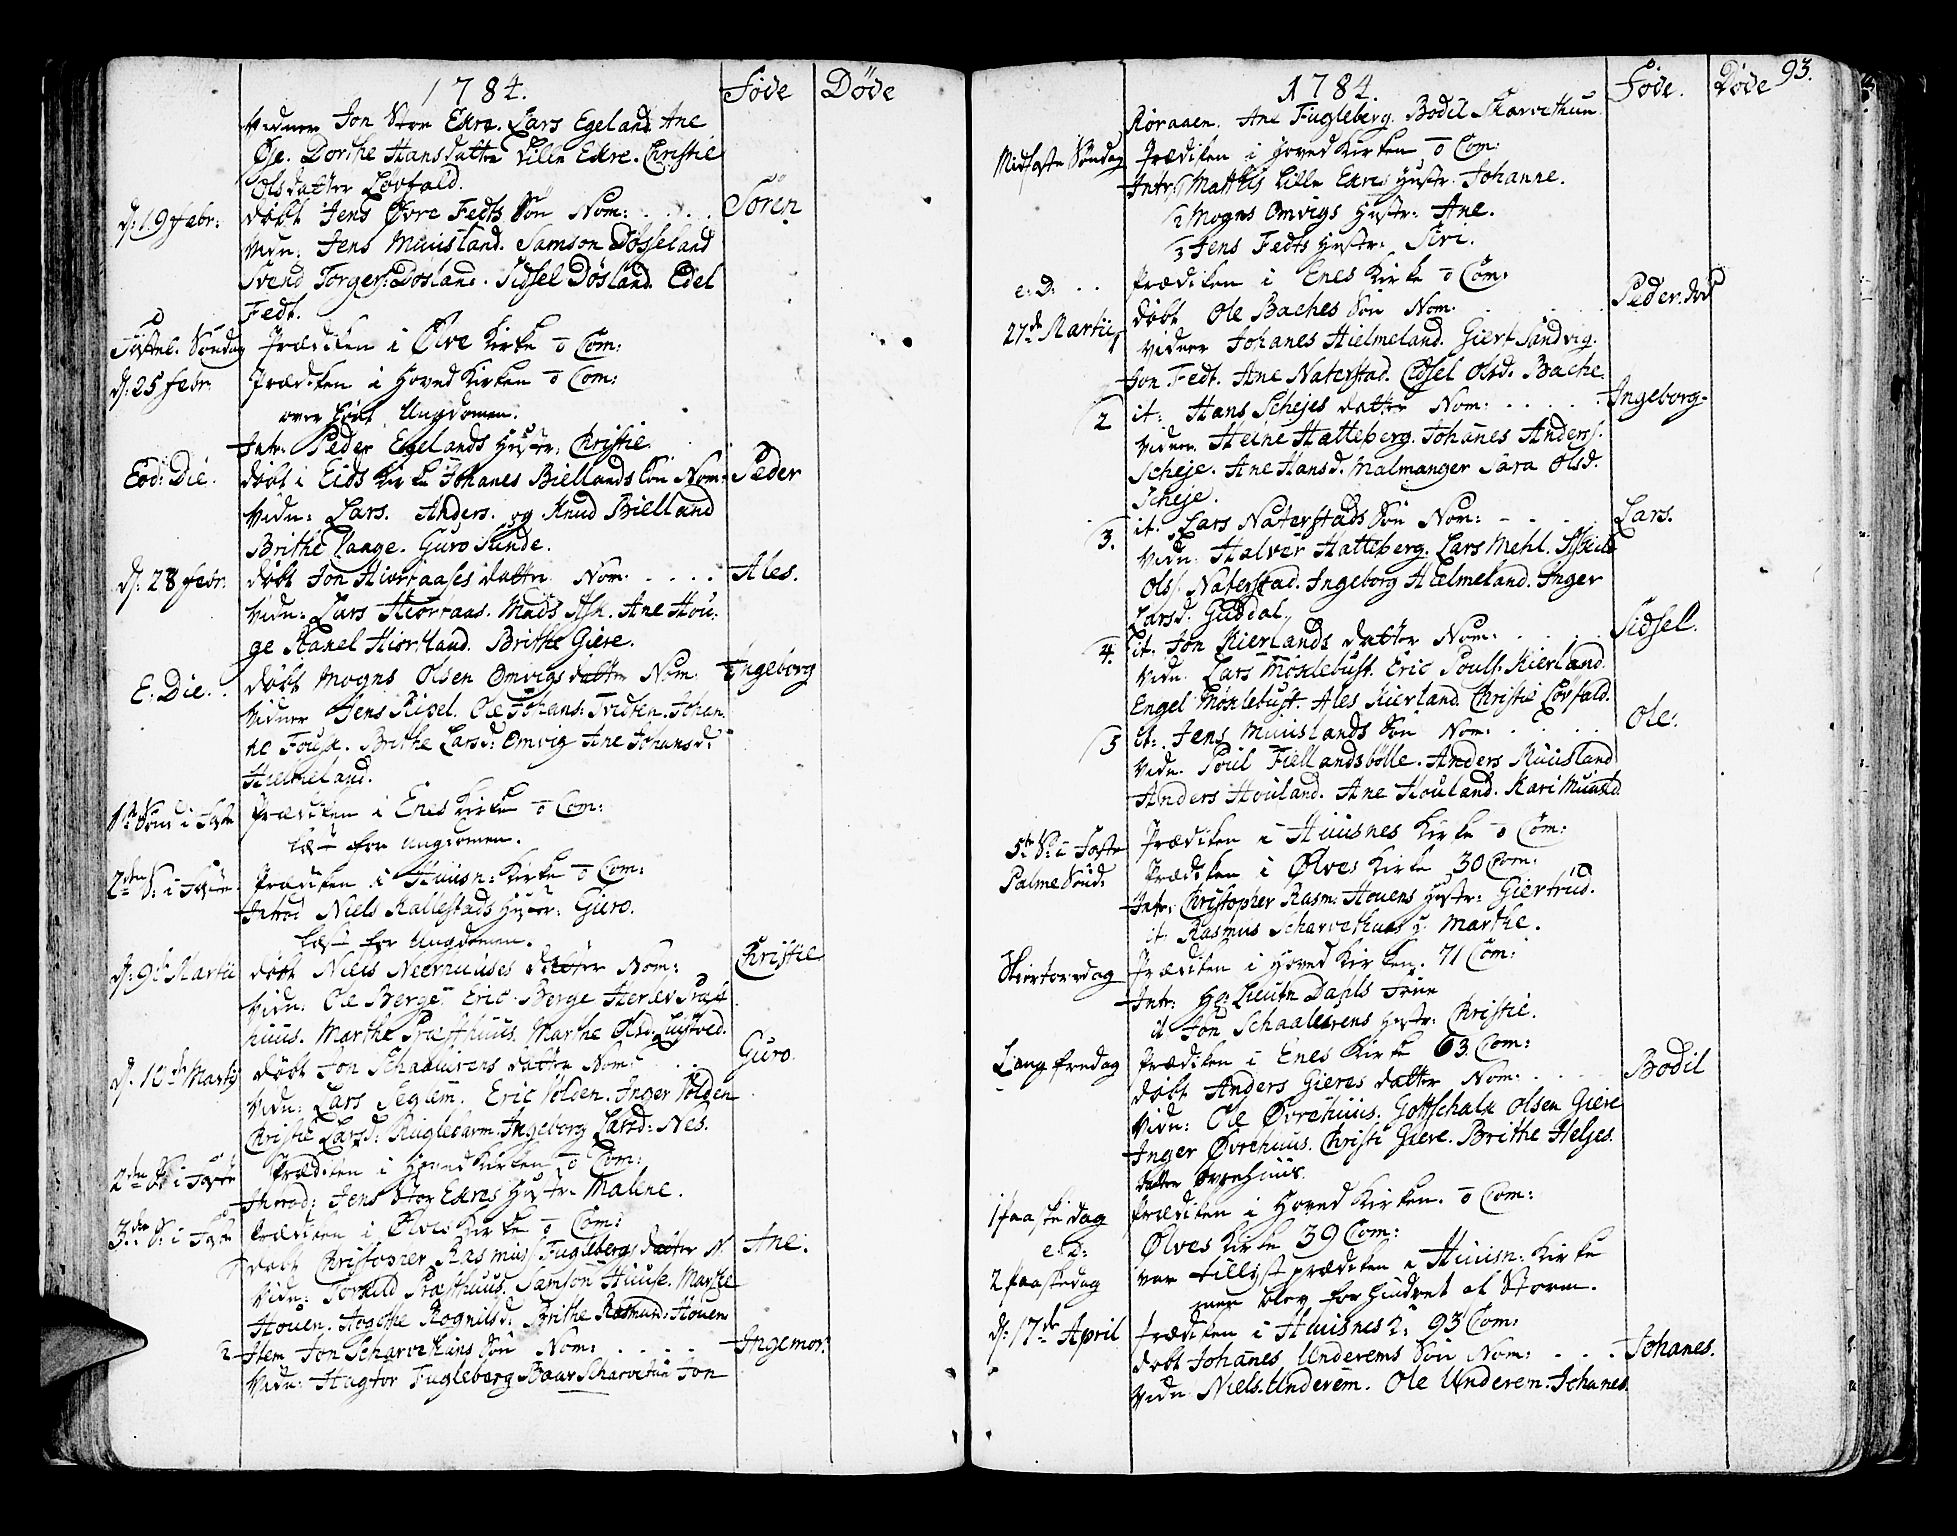 1784.
Föde
Döde
Vidner Jon Stor Ekre. Lars Egeland Ane
Øje. Dorthe Hansdatter Lille Ekre. Christie
Olsdatter Løvfald.
d: 19 febr:
döbt Jens Øvre Fedts Sön Nom: . . . .
Sören
Vidn: Jens Muusland. Samson Døsseland
Svend Torgers: Dösland. Sidsel Dösland. Edel
Fedt.
Fastel. Söndag
Prædiken i Ølve Kirke o Com:
d: 25 febr:
Prædiken i Hoved Kirken o Com:
over hört Ungdomen.
Intr: Peder Egelands Hustr: Christie
Eod: Die.
döbt i Eids Kirke Johanes Biellands Sön Nom:
Peder
Vidn: Lars. Anders. og Knud Bielland
Brithe Vange. Guro Sunde.
d: 28 febr.
döbt Jon Hiortaases datter Nom: . . . .
Ales.
Vidn: Lars Hiortaas. Mads Ash. Ane Hou-
ge Ranel Hiortland. Brithe Giere.
E: Die.
döbt Mogns Olsen Omvigs datter Nom
Ingeborg
Vidner Jens Ripel. Ole Johans: Tvidten. Johan
ne Fouse. Brithe Larsd: Omvig Ane Johansd:
Hielmeland.
1te Sönd i Faste
Prædiken i Enes Kirke o Com:
læst for Ungdomen.
2den S: i Faste
Prædiken i Huusn: Kirke o Com:
Introd Niels Rallestads Hustr: Guro.
læst for Ungdomen.
d: 9de Martii
döbt Niels Neerhuuses datter Nom:
Christie
Vidn: Ole Berge. Eric Berge Herlev Præst
huus. Marthe Præsthuus. Marthe Olsd.
d: 10de Martij
döbt Jon Schaalurens datter Nom:
Guro.
Vidn: Lars Seglem. Eric Volden. Inger Volden
Christie Larsd: Ingeborg Larsd: Nes.
2den S: i Faste
Prædiken i Hoved Kirken o Com:
Introd: Jens Stor Ekres Hustr: Maline.
3die S: i Faste
Prædiken i Ølves Kirke o Com:
döbt Christopher Rasmuss: Fuglebergs datter N.
Ane.
Vidn: Torkild Præsthuus. Samson Huuse. Marthe
Houen. Aagothe Rognilsd: Brithe Rasmusd: Houen
2
Item Jon Scharvethuns Sön Nom: . . . . .
Ingemor.
Vidn: Hagtor Fugleberg Baar Scharvetun Jon
1784.
Föde.
Döde
93.
Röraaen. Ane Fugleberg. Bodil Skarvethun
Midfaste Söndag
Prædiken i Hoved Kirken o Com:
Intr: 1 Mattis Lille Ekres Hustr: Johanne.
2 Mogns Omvigs Hustr: Ane.
3 Jens Fedts Hustr: Siri.
e: D: . .
Prædiken i Enes Kirke o Com:
27de Martii
döbt Ole Baches Sön Nom. . . .
Peder. död
Vidner Johanes Hielmeland. Giert Sandvig.
Jon Fedt. Ane Naterstad. Cidsel Olsd. Bache.
2
it: Hans Schejes datter Nom: . . . .
Ingeborg.
Vidner Heine Hatteberg. Johanes Anders:
Scheje. Ane Hansd. Malmanger Sara Olsd.
Scheje.
3.
it. Lars Naterstads Sön Nom: . . . .
Lars.
Vidn. Halver Hatteberg. Lars Mehl.
Ols: Naterstad. Ingeborg Hielmeland. Inger
Larsd. Guddal.
4.
it. Jon Kierlands datter Nom: . . . .
Sidsel.
Vidn. Lars Möxlebust. Eric Pouls. Kierland.
Engel Möxlebust. Ales Kierland. Christie Lövfald.
5
it: Jens Muuslands Sön Nom: . . . .
Ole.
Vidn. Poul Fiellandsbölle. Anders Muusland
Anders Houland. Ane Houland. Kari Muusld.
5te S: i Faste
Prædiken i Huusnes Kirke o Com:
Palme Sönd:
Prædiken i Ølves Kirke 30 Com:
Intr: Christopher Rasm: Houens Hustr: Giertrud.
it. Rasmus Scharvethuns H: Marthe.
Skiertorsdag
Prædiken i Hoved Kirken. 71 Com:
Intr: Hr: Lieutn Dahls Frue
it Jon Schaalurens Hustr: Christie.
Lang fredag
Prædiken i Enes Kirke 63. Com:
döbt Anders Gieres datter Nom: . . . .
Bodil
Vidn: Ole Øvrehuus. Gottschalk Olsen Giere
Inger Øvrehuus. Christi Giere. Brithe Helges
datter Øvrehuus.
1 Paaske dag
Prædiken i Hoved Kirken. o Com:
e: D:
Ølves Kirke 39 Com:
2 Paaskedag
var tillyst prædiken i Huusn: Kirke
men blev forhindret af Storm.
d: 17de April
Prædiken i Huusnes K: 93 Com:
döbt Johanes Underems Sön Nom: . . .
Johanes.
Vidn Niels Underem. Ole Underem. Johanes